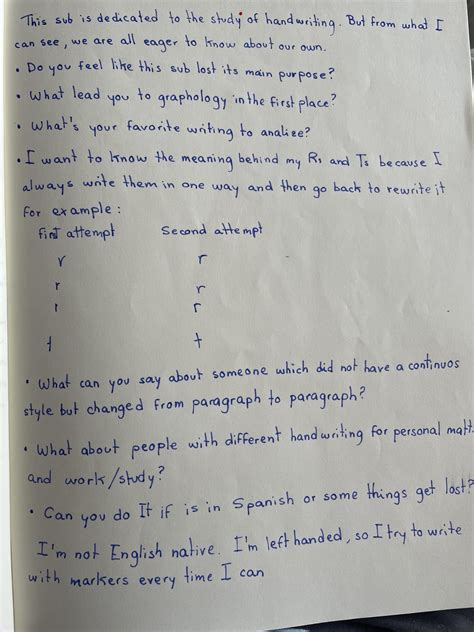 This sub is dedicated to the study of handwriting. But from what I
can see, we are all eager to know about our own.
• Do you feel like this sub lost its main purpose?
• What lead you to graphology in the first place?
• What's your favorite writing to analize?
• I want to know the meaning behind my Rs and Ts because I
always write them in one way and then go back to rewrite it
for example:
first attempt Second attempt
r r
r r
r r
t t
• What can you say about someone which did not have a continuos
style but changed from paragraph to paragraph?
• What about people with different handwriting for personal matt
and work/study?
• Can you do It if is in Spanish or some things get lost?
I'm not English native. I'm left handed, so I try to write
with markers every time I can